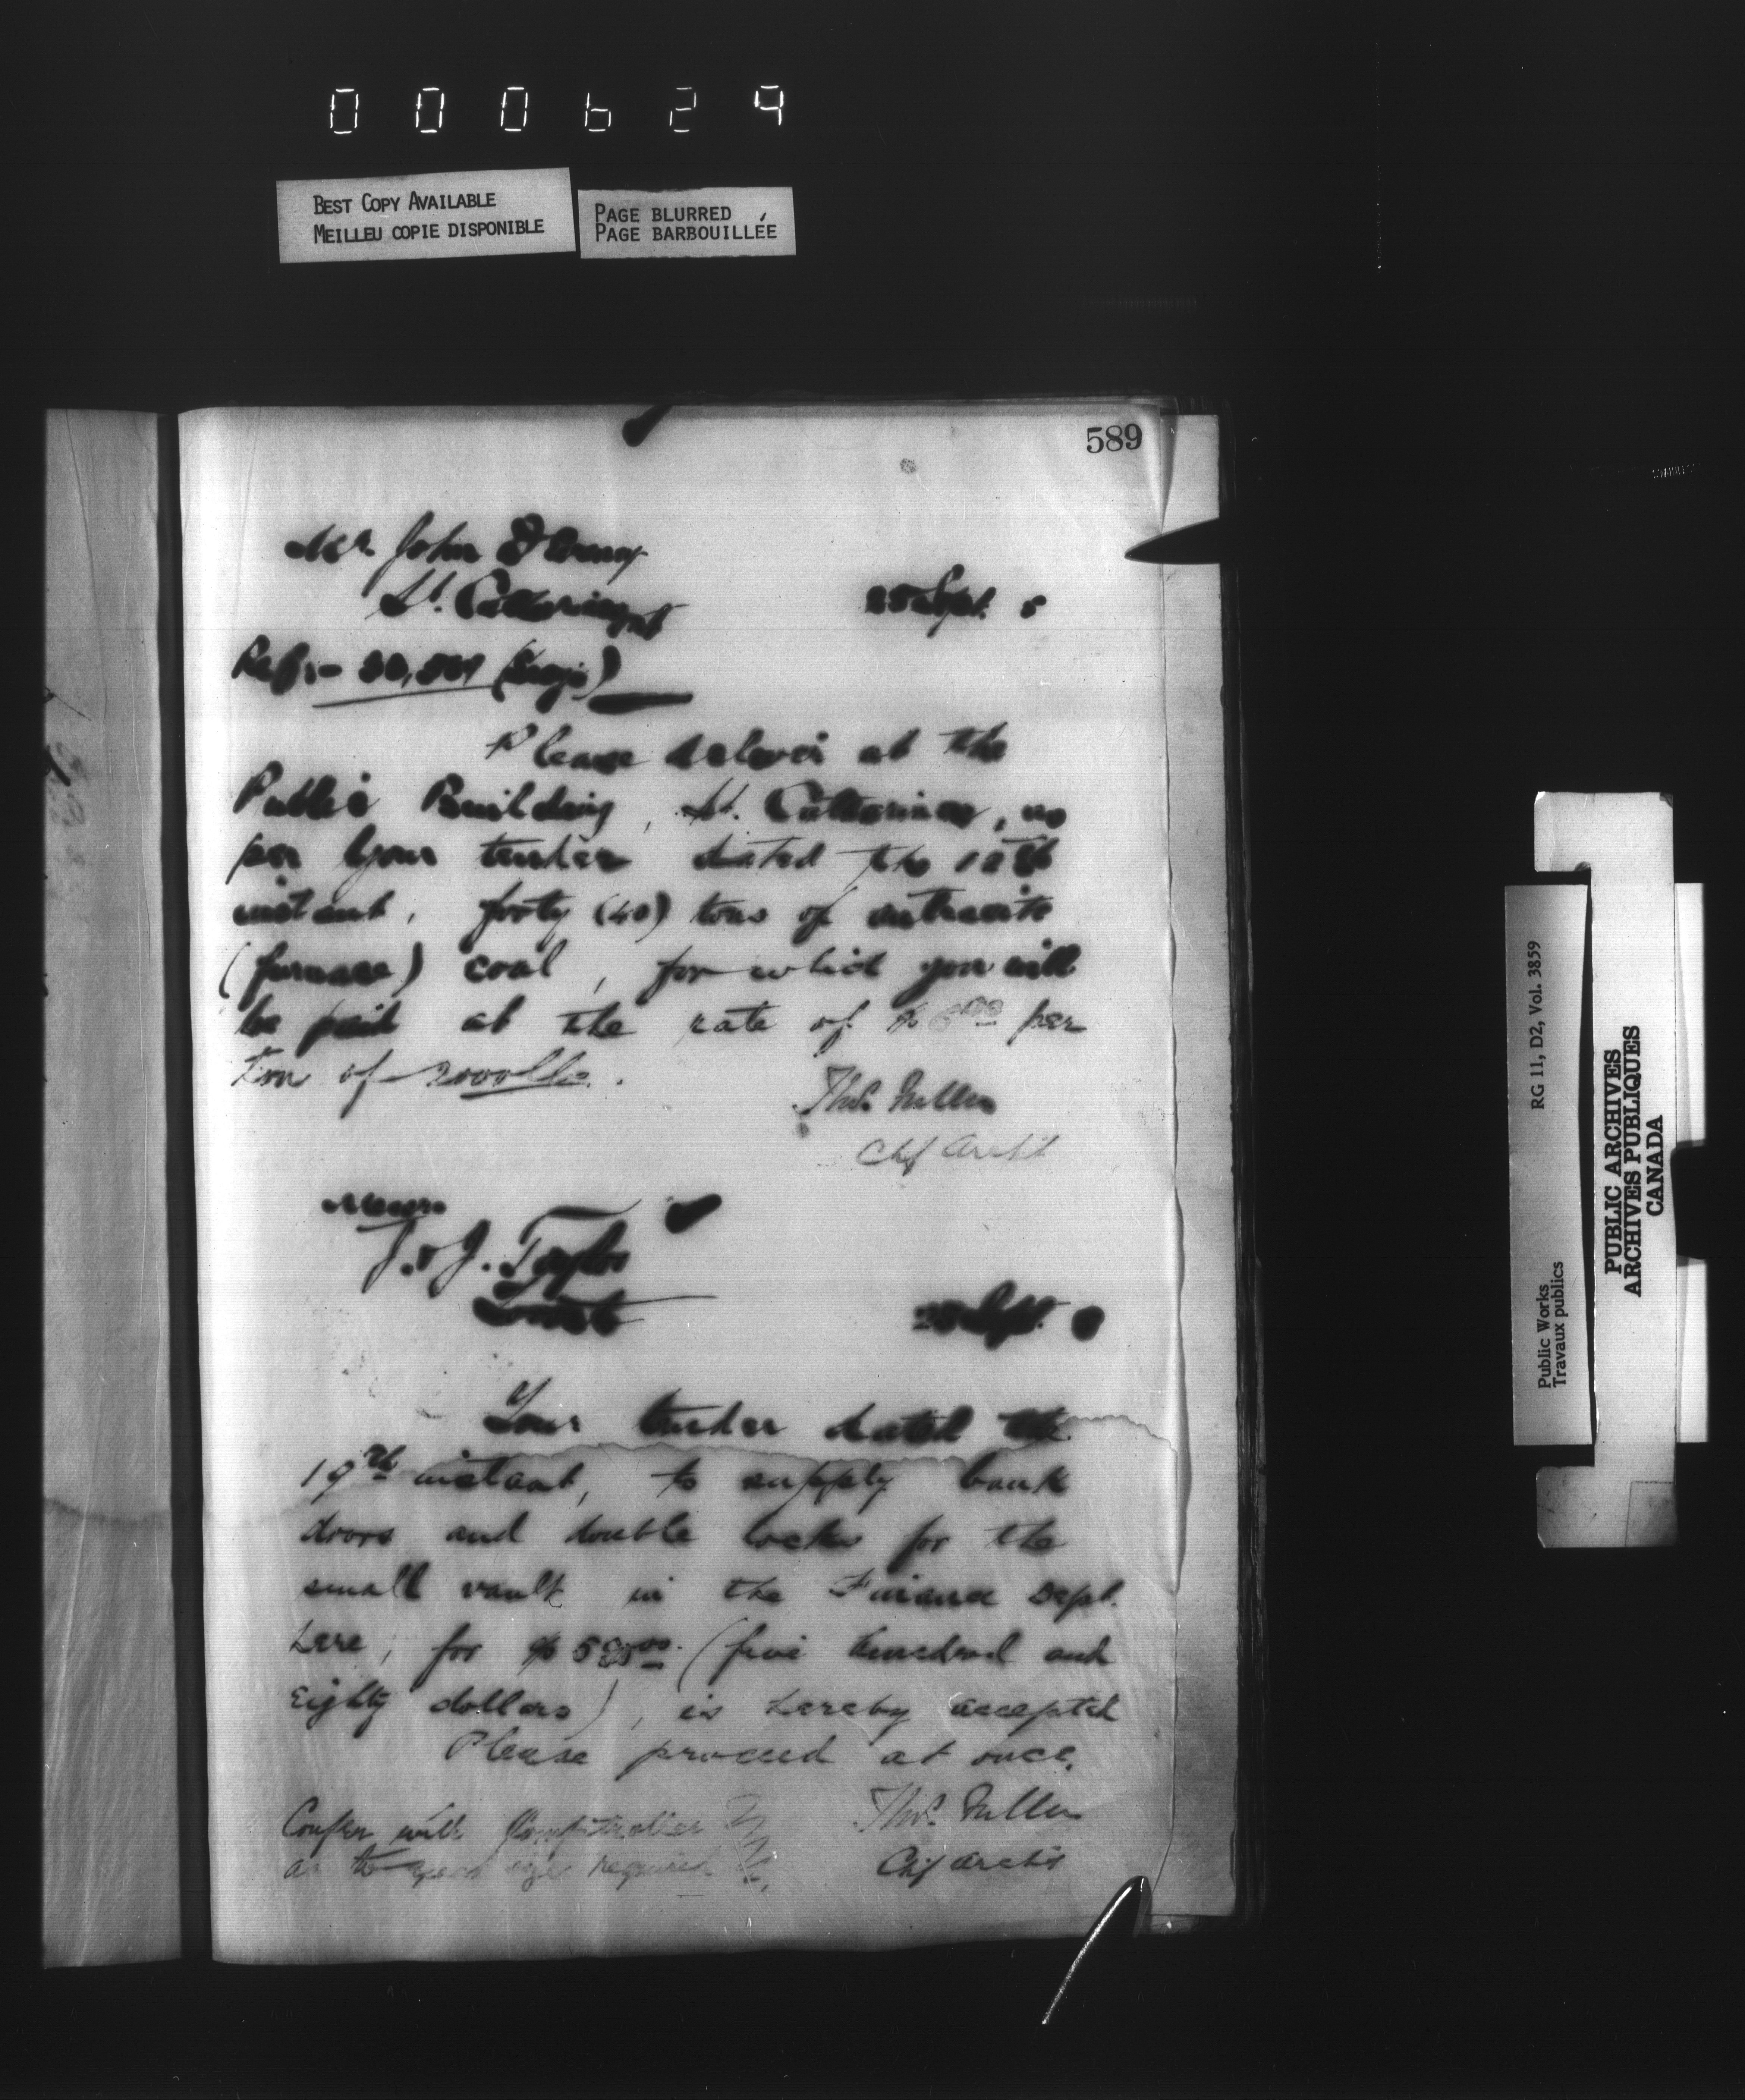 000629
BEST COPY AVAILABLE
MEILLEU COPIE DISPONIBLE
PAGE BLURRED
PAGE BARBOUILLÉE
589
Mr John
St. Catharines
25 Sept. 5
Ref:-
Please deliver at the
Public Building, St. Catharines, as
per your tender dated the 12th
instant, forty (40) tons of anthracite
(furnace) coal, for which you will
be paid at the rate of $ per
ton of 2000 lbs.
Thos. Fuller
Chf Archt
Messrs
J. & J. Taylor
Toronto
Sept.
Your tender dated the
19th instant, to supply bank
doors and double locks for the
small vault in the Finance Dept.
here, for $580.00 (five hundred and
eighty dollars), is hereby accepted
Please proceed at once.
Thos. Fuller
Chf Archt
Confer with
as to size required
RG 11, D2, Vol. 3859
Public Works
Travaux publics
PUBLIC ARCHIVES
ARCHIVES PUBLIQUES
CANADA